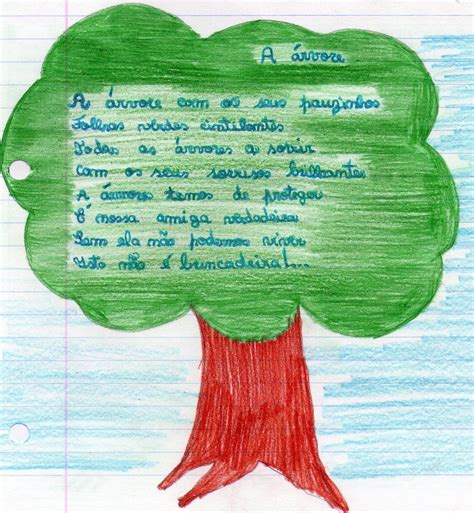 A árvore
A árvore com os seus pauzinhos
Folhas verdes cintilantes
Todas as árvores a sorrir
Com os seus sorrisos brilhantes
A árvores temos de proteger
É nossa amiga verdadeira
Sem ela não podemos viver
Isto não é brincadeira!...